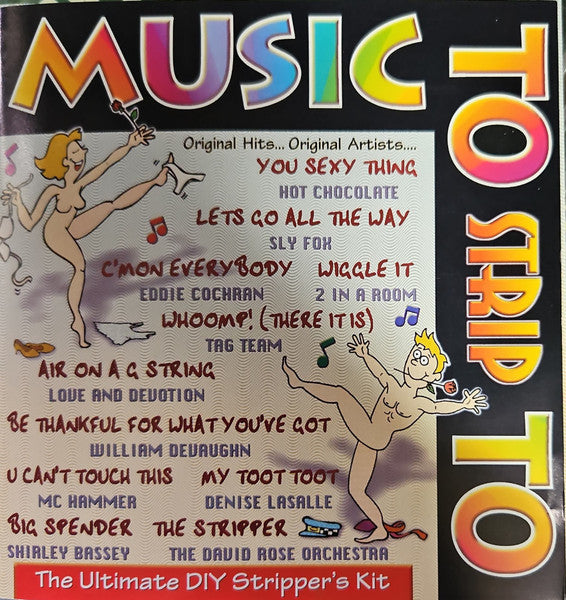 MUSIC
TO STRIP TO
Original Hits... Original Artists....
YOU SEXY THING
HOT CHOCOLATE
LETS GO ALL THE WAY
SLY FOX
C'MON EVERYBODY WIGGLE IT
EDDIE COCHRAN 2 IN A ROOM
WHOOMP! (THERE IT IS)
TAG TEAM
AIR ON A G STRING
LOVE AND DEVOTION
BE THANKFUL FOR WHAT YOU'VE GOT
WILLIAM DEVAUGHN
U CAN'T TOUCH THIS MY TOOT TOOT
MC HAMMER DENISE LASALLE
BIG SPENDER THE STRIPPER
SHIRLEY BASSEY THE DAVID ROSE ORCHESTRA
The Ultimate DIY Stripper's Kit